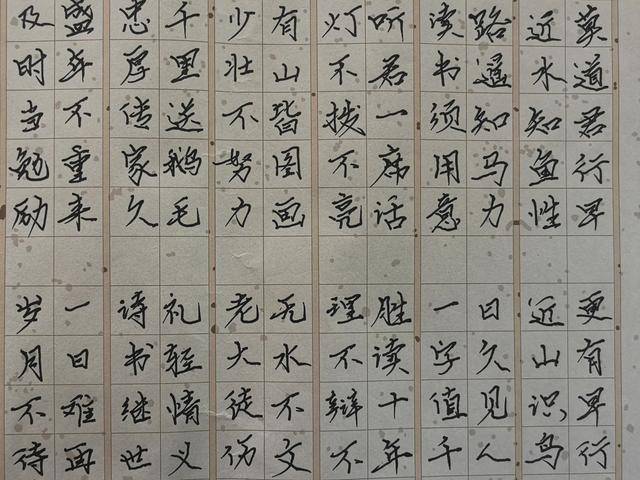 莫道君行早 更有早行
近水知鱼性 近山识鸟
路遥知马力 日久见人
读书须用意 一字值千
听君一席话 胜读十年
灯不拨不亮 理不辩不
有山皆图画 无水不文
少壮不努力 老大徒伤
千里送鹅毛 礼轻情义
忠厚传家久 诗书继世
盛年不重来 一日难再
及时当勉励 岁月不待